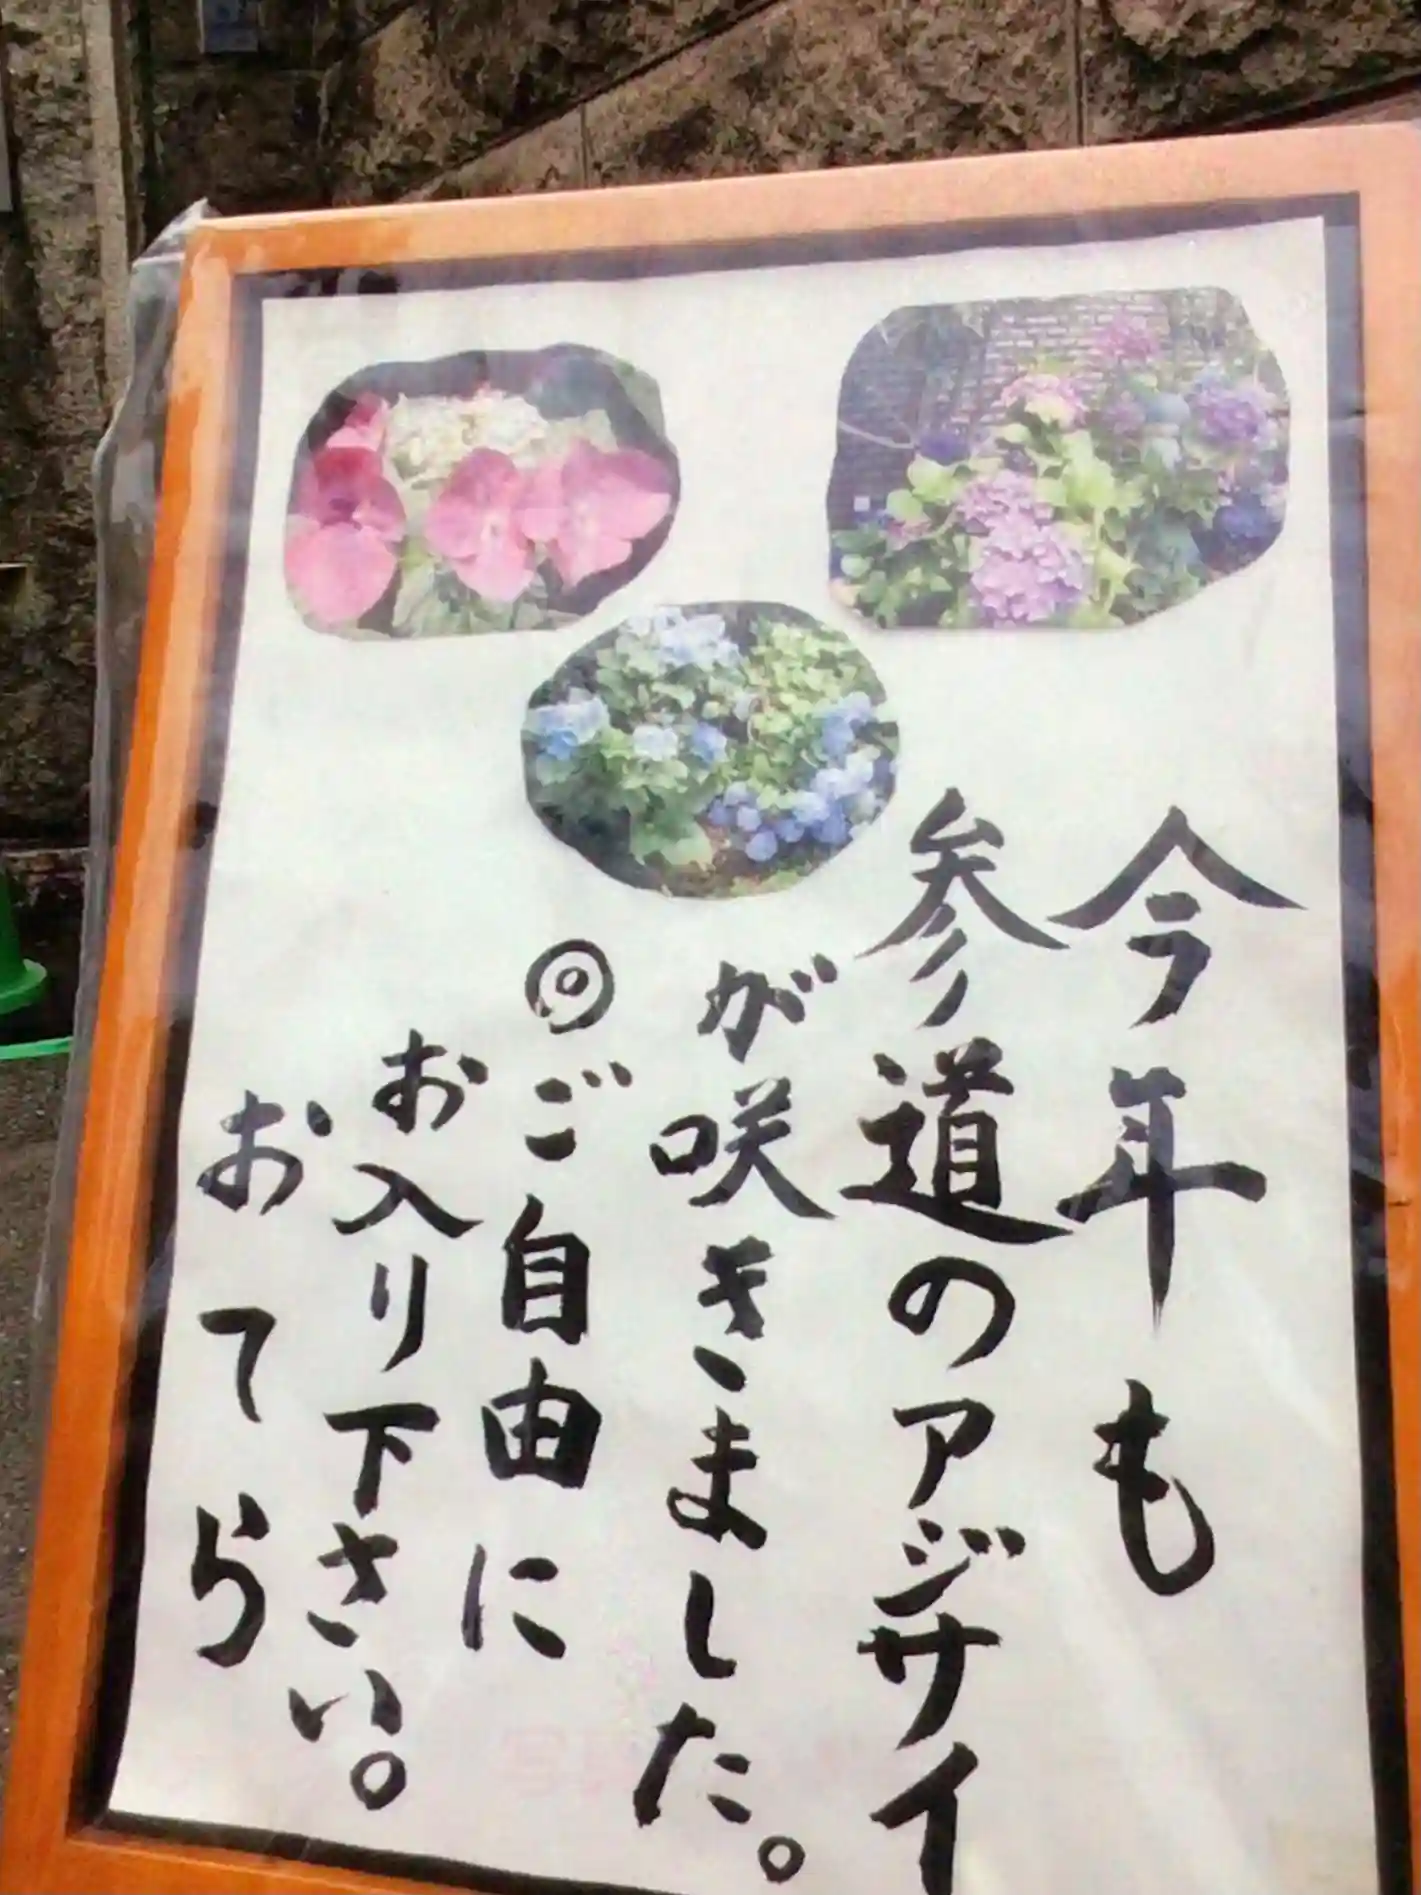 今年も
参道のアジサイ
が咲きました。
◎ご自由に
お入り下さい。
おてら